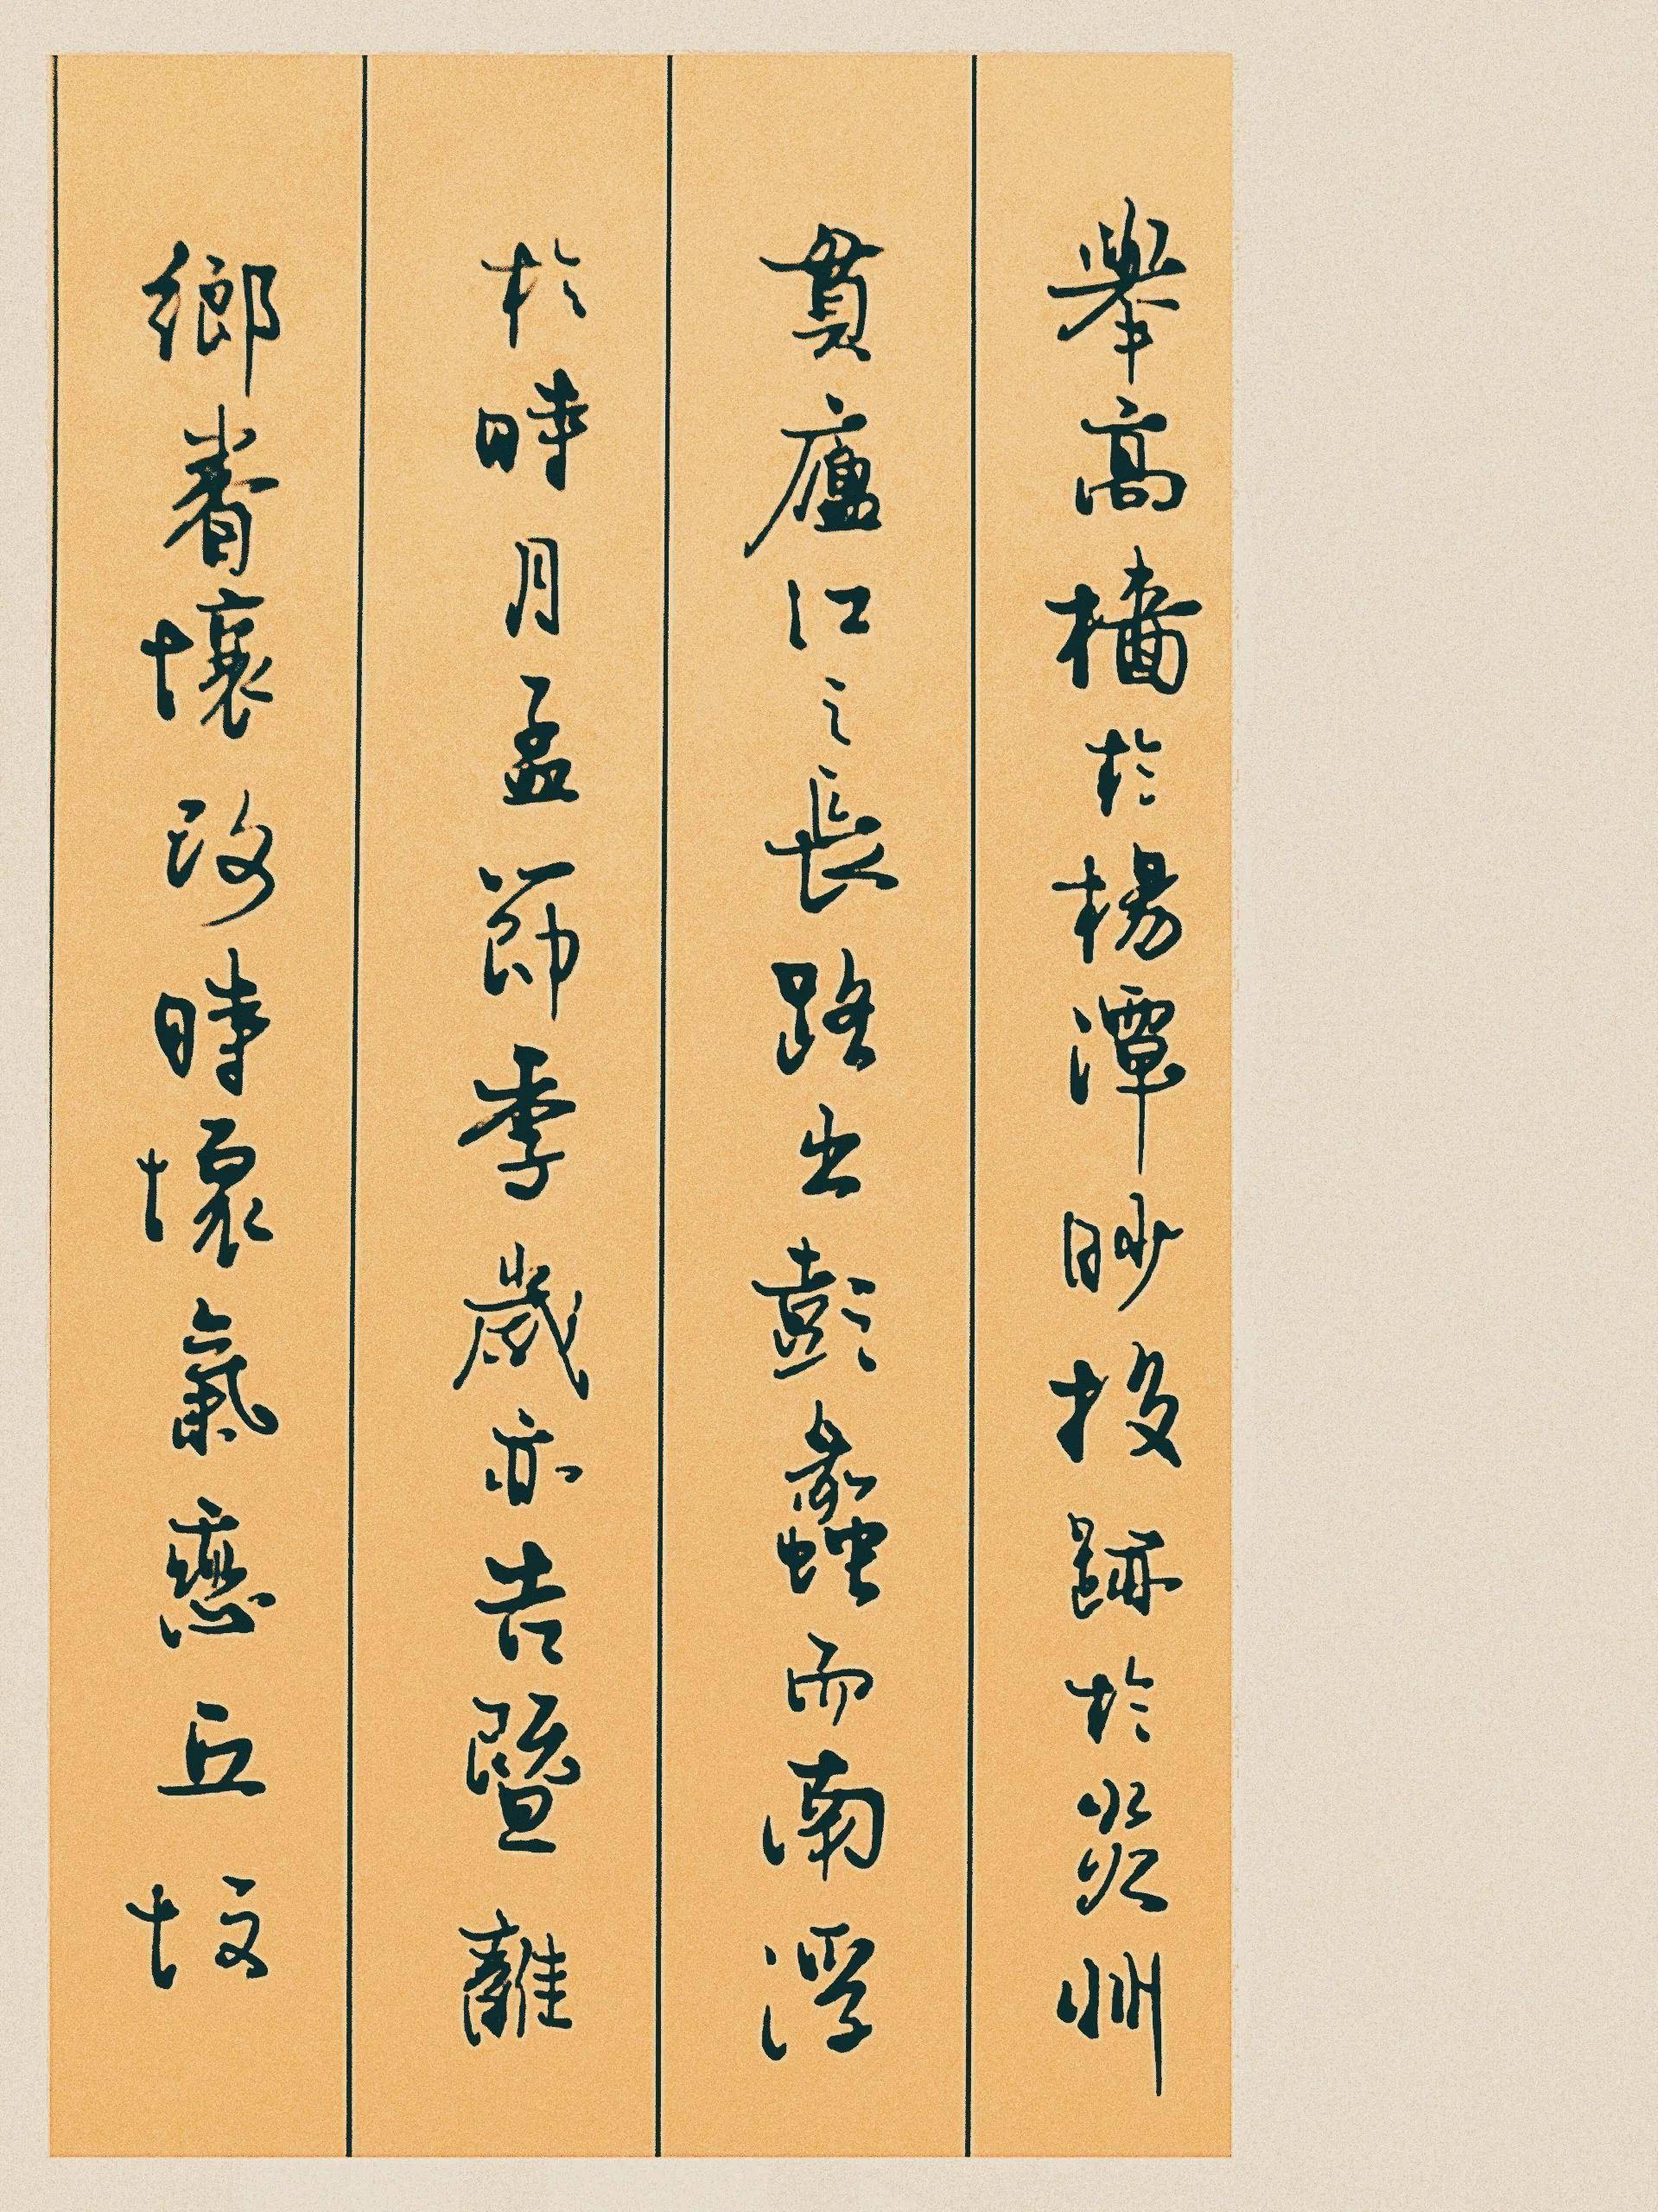 舉高檣於楊潭眇投跡於炎州
貫廬江之長路出彭蠡而南浮
於時月孟節季歲亦告暨離
鄉眷壤改時懷氣戀丘坟